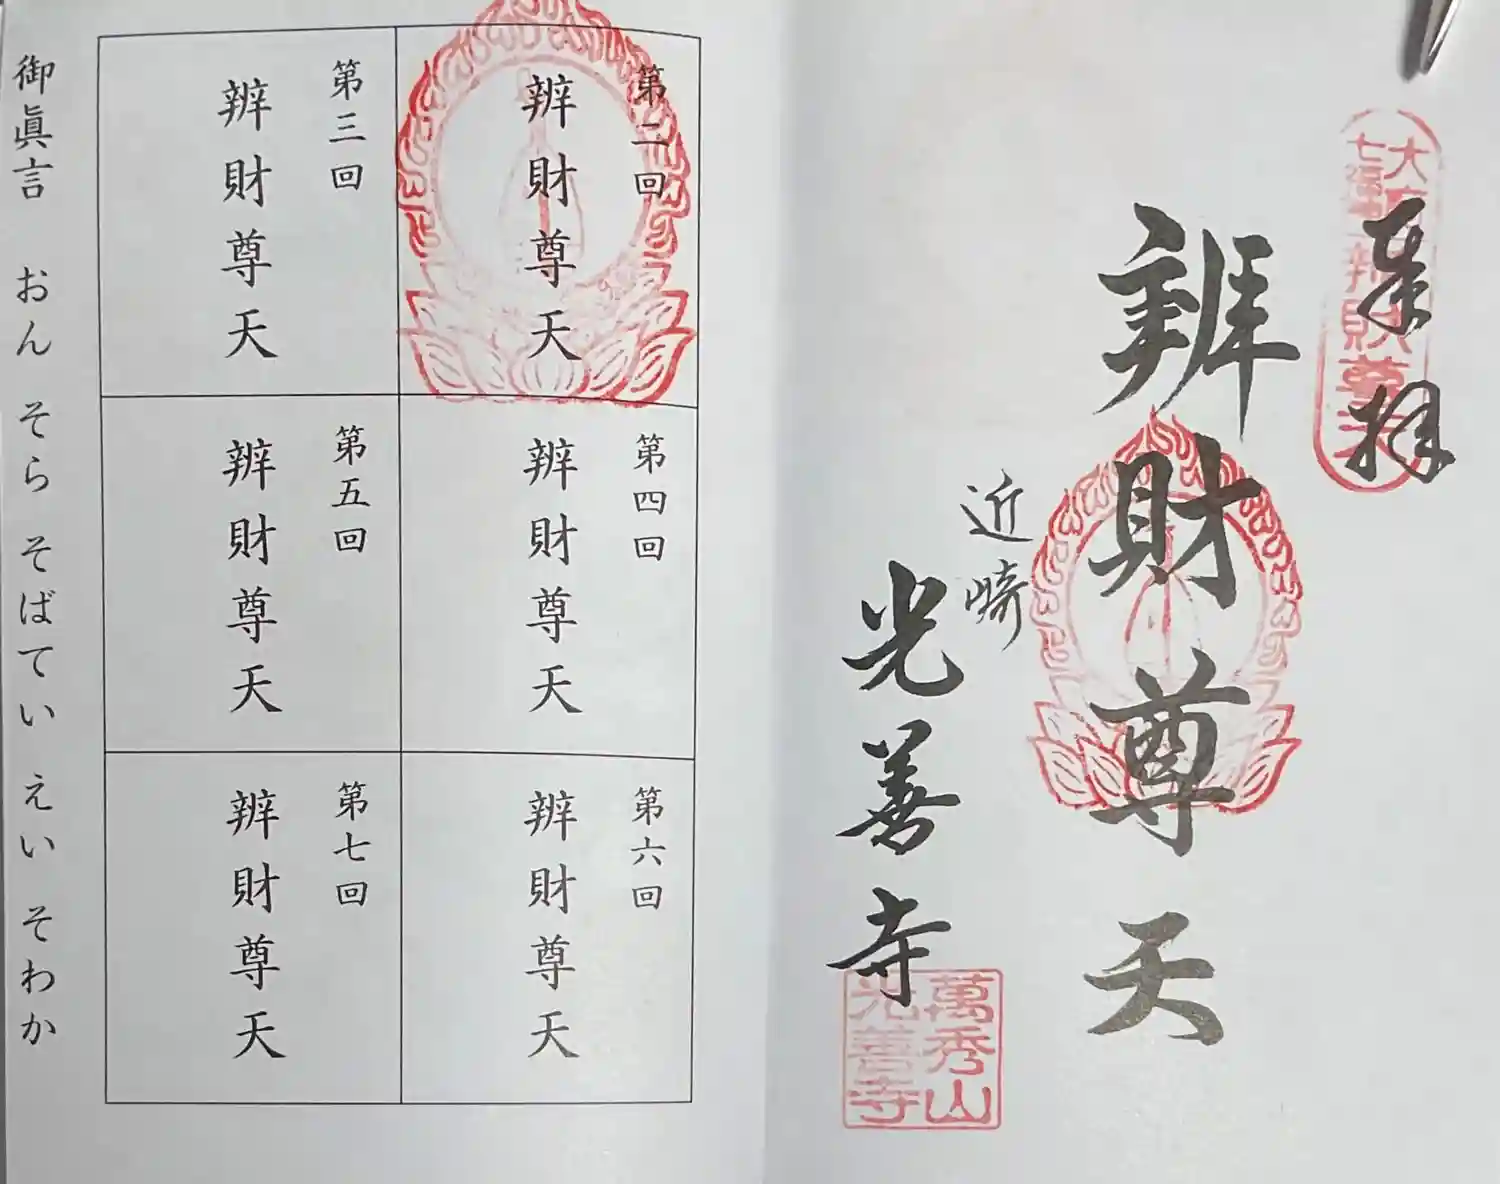 大府
七福
辨財尊天
奉拝
辨財尊天
近崎
光善寺
萬秀山
光善寺
第二回
辨財尊天
第三回
辨財尊天
第四回
辨財尊天
第五回
辨財尊天
第六回
辨財尊天
第七回
辨財尊天
御眞言 おん そら そばてい えい そわか